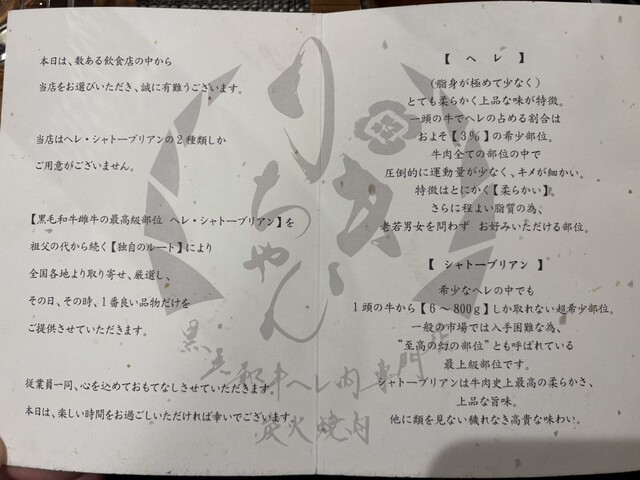 本日は、数ある飲食店の中から
当店をお選びいただき、誠に有難うございます。
当店はヘレ・シャトーブリアンの2種類しか
ご用意がございません。
【黒毛和牛雌牛の最高級部位 ヘレ・シャトーブリアン】を
祖父の代から続く【独自のルート】により
全国各地より取り寄せ、厳選し、
その日、その時、1番良い品物だけを
ご提供させていただきます。
従業員一同、心を込めておもてなしさせていただきます。
本日は、楽しい時間をお過ごしいただければ幸いでございます。
【 ヘレ 】
(脂身が極めて少なく)
とても柔らかく上品な味が特徴。
一頭の牛でヘレの占める割合は
およそ【3%】の希少部位。
牛肉全ての部位の中で
圧倒的に運動量が少なく、キメが細かい。
特徴はとにかく【柔らかい】。
さらに程よい脂質の為、
老若男女を問わず お好みいただける部位。
【 シャトーブリアン 】
希少なヘレの中でも
1頭の牛から【6〜800g】しか取れない超希少部位。
一般の市場では入手困難な為、
“至高の幻の部位”とも呼ばれている
最上級部位です。
シャトーブリアンは牛肉史上最高の柔らかさ、
上品な旨味。
他に類を見ない穢れなき高貴な味わい。
りき、ちゃん
黒毛和牛ヘレ肉専門店
炭火焼肉